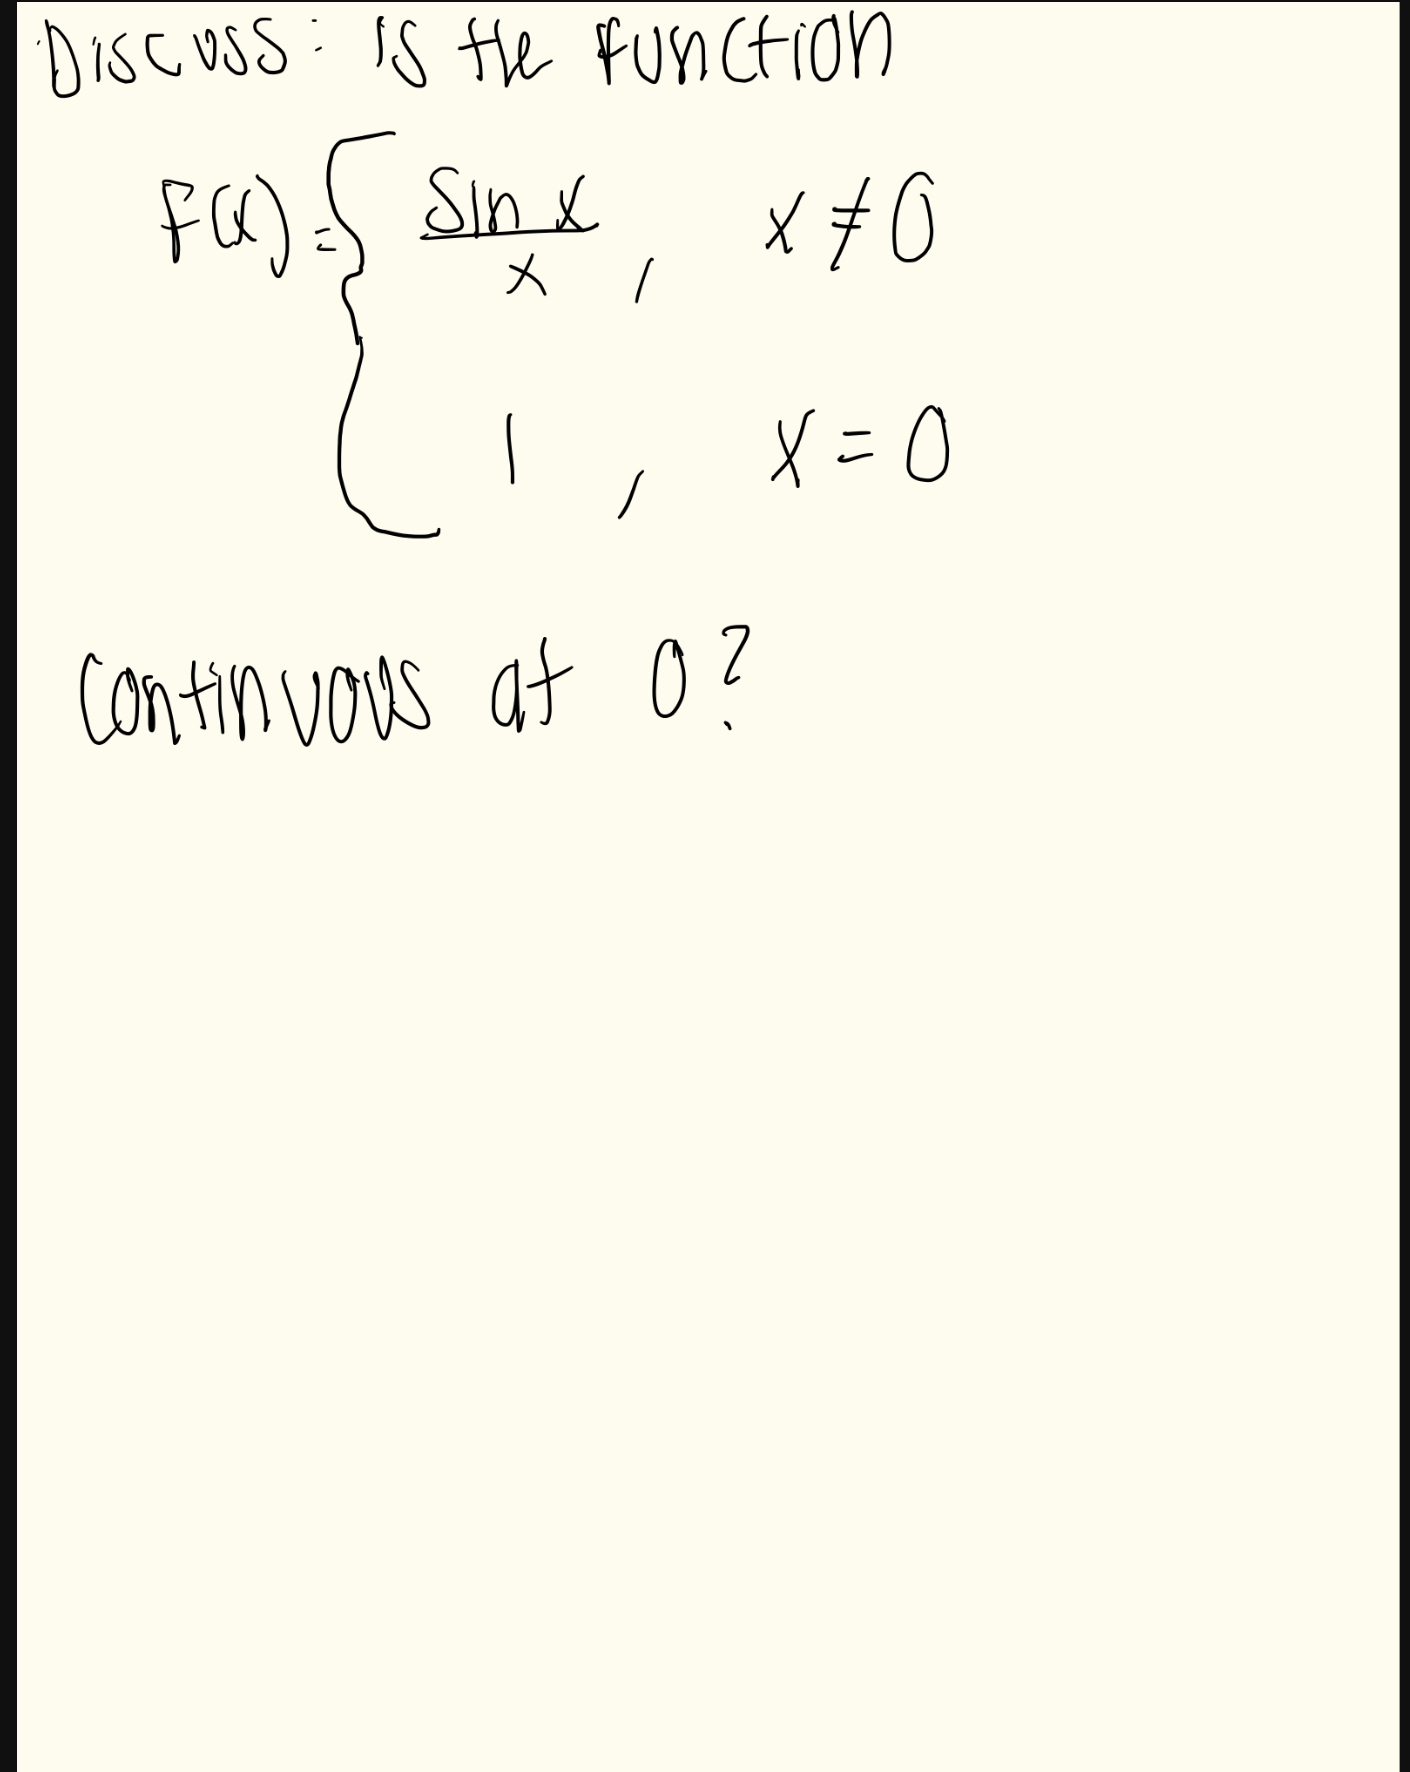 Discuss: is the function
F(x) = { sin x / x , x ≠ 0
1 , x = 0
continuous at 0?